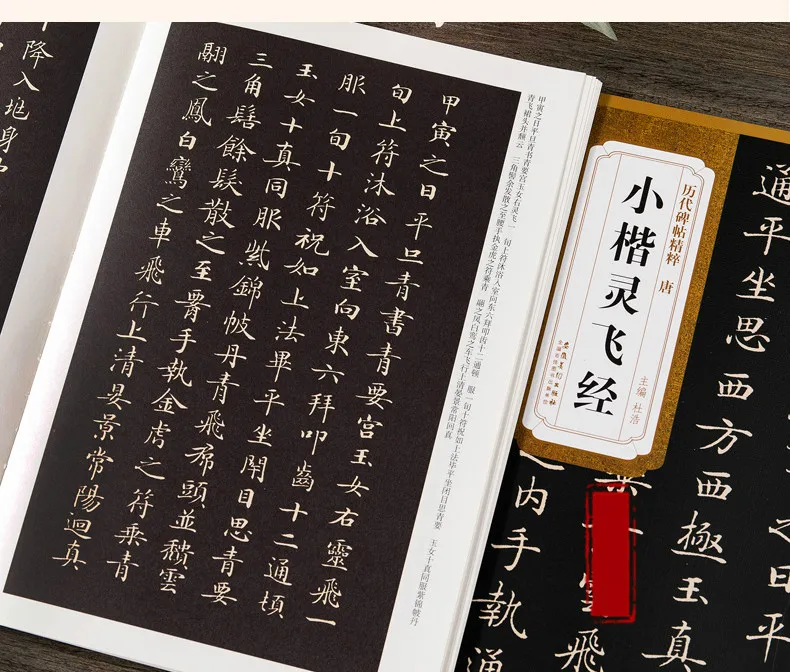 降入地身中
甲寅之日平旦青書青要宮玉女右靈飛一
旬上符沐浴入室向東六拜叩齒十二通頓
服一旬十符祝如上法畢平坐閉目思青要
玉女十真同服紫錦帔丹青飛帬頭並頹雲
三角髻餘髮散之至腰手執金虎之符乘青
翮之鳳白鸞之車飛行上清晏景常陽迴真
甲寅之日平旦青书青要宫玉女右灵飞一 旬上符沐浴入室向东六拜叩齿十二通顿 服一旬十符祝如上法毕平坐闭目思青要 玉女十真同服紫锦帔丹
青飞裙头并颓云 三角髻余发散之至腰手执金虎之符乘青 翮之凤白鸾之车飞行上清晏景常阳回真
历代碑帖精粹 唐
小楷灵飞经
主编 杜浩
安徽美术出版社
通平坐思西方西極玉真
之内手執
飛
之日平
通